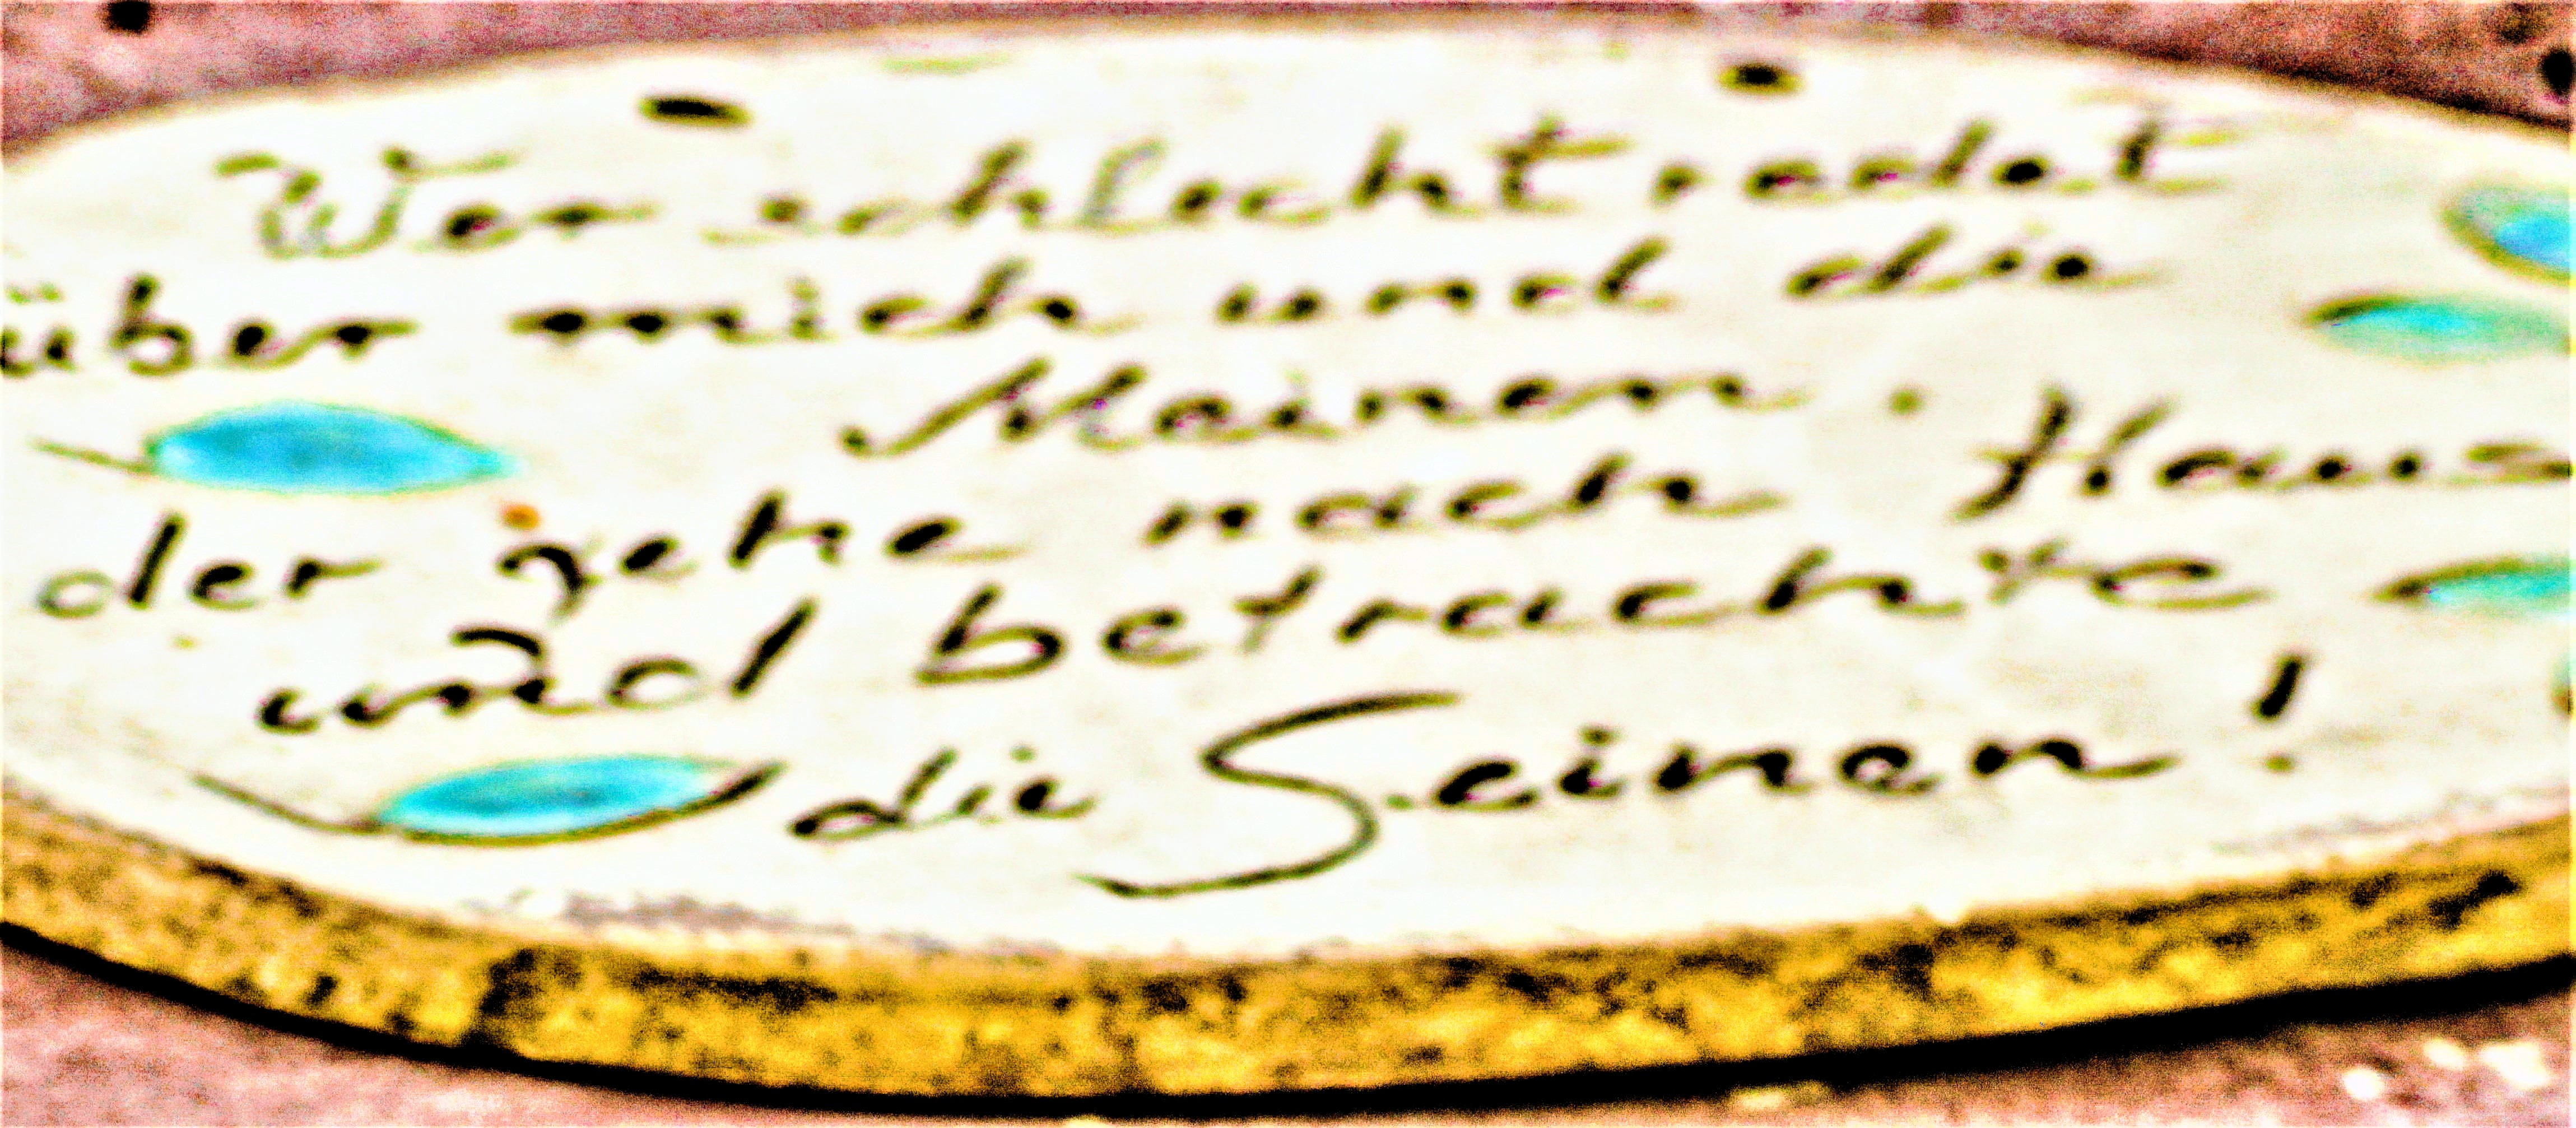 Wer schlecht redet
über mich und die
Meinen.
der gehe nach Haus
und betrachte
die Seinen!